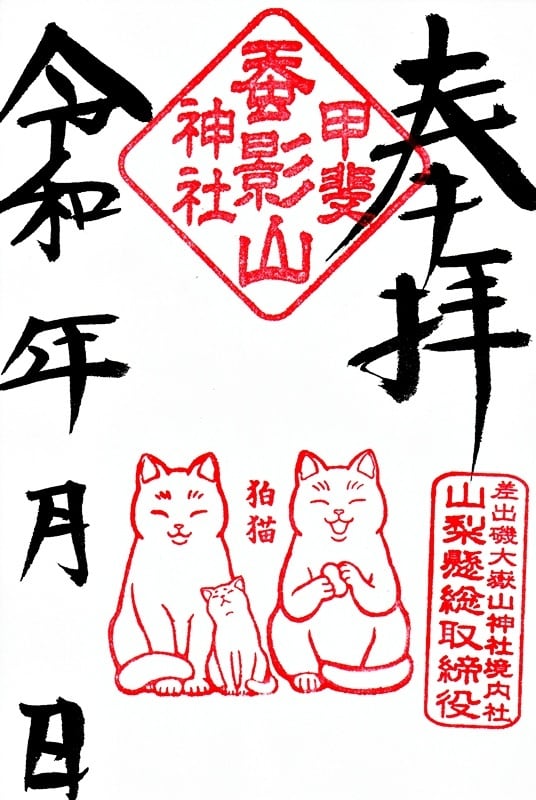 奉拝
甲斐
蚕影山
神社
令和 年 月 日
狛猫
差出磯大嶽山神社境内社
山梨懸総取締役